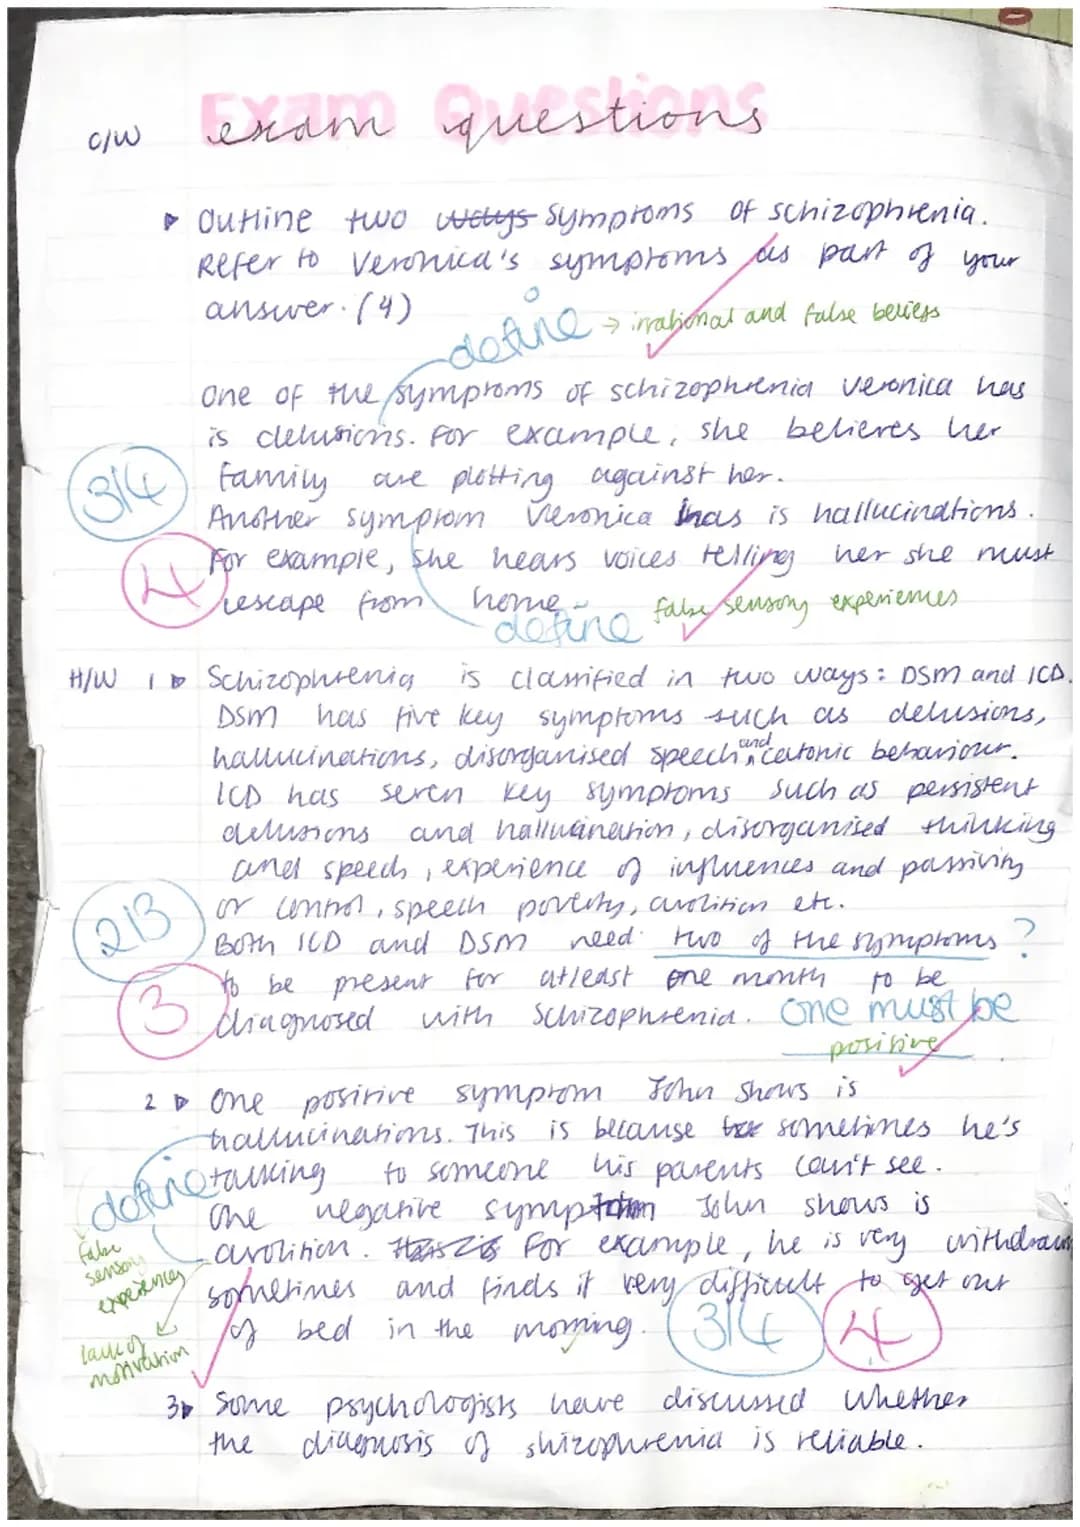 Exam Questions
C/W exam questions
Outline two ways symptoms of schizophrenia.
Refer to Veronica's symptoms as part of your
answer. (4)
define → irrational and false beliefs
One of the symptoms of schizophrenia Veronica has
is delusions. For example, she believes her
family are plotting against her.
3/4
Another symptom Veronica has is hallucinations.
For example, she hears voices telling her she must
4
escape from home.
define false sensory experiences
H/W 1 Schizophrenia is classified in two ways: DSM and ICD.
DSM has five key symptoms such as delusions,
hallucinations, disorganised speech and catonic behaviour.
ICD has seven key symptoms such as persistent
delusions and hallucination, disorganised thinking
and speech, experience of influences and passivity
or control, speech poverty, avolition etc.
2/3
Both ICD and DSM need two of the symptoms ?
to be present for atleast one month to be
3
diagnosed with Schizophrenia. one must be
positive
2 One positive symptom John shows is
hallucinations. This is because sometimes he's
talking to someone his parents can't see.
define
One negative symptom John shows is
avolition. For example, he is very withdrawn
false
sensory
experiences
sometimes and finds it very difficult to get out
of bed in the morning. 3/4 4
lack of
motivation
3 Some psychologists have discussed whether
the diagnosis of shizophrenia is reliable.